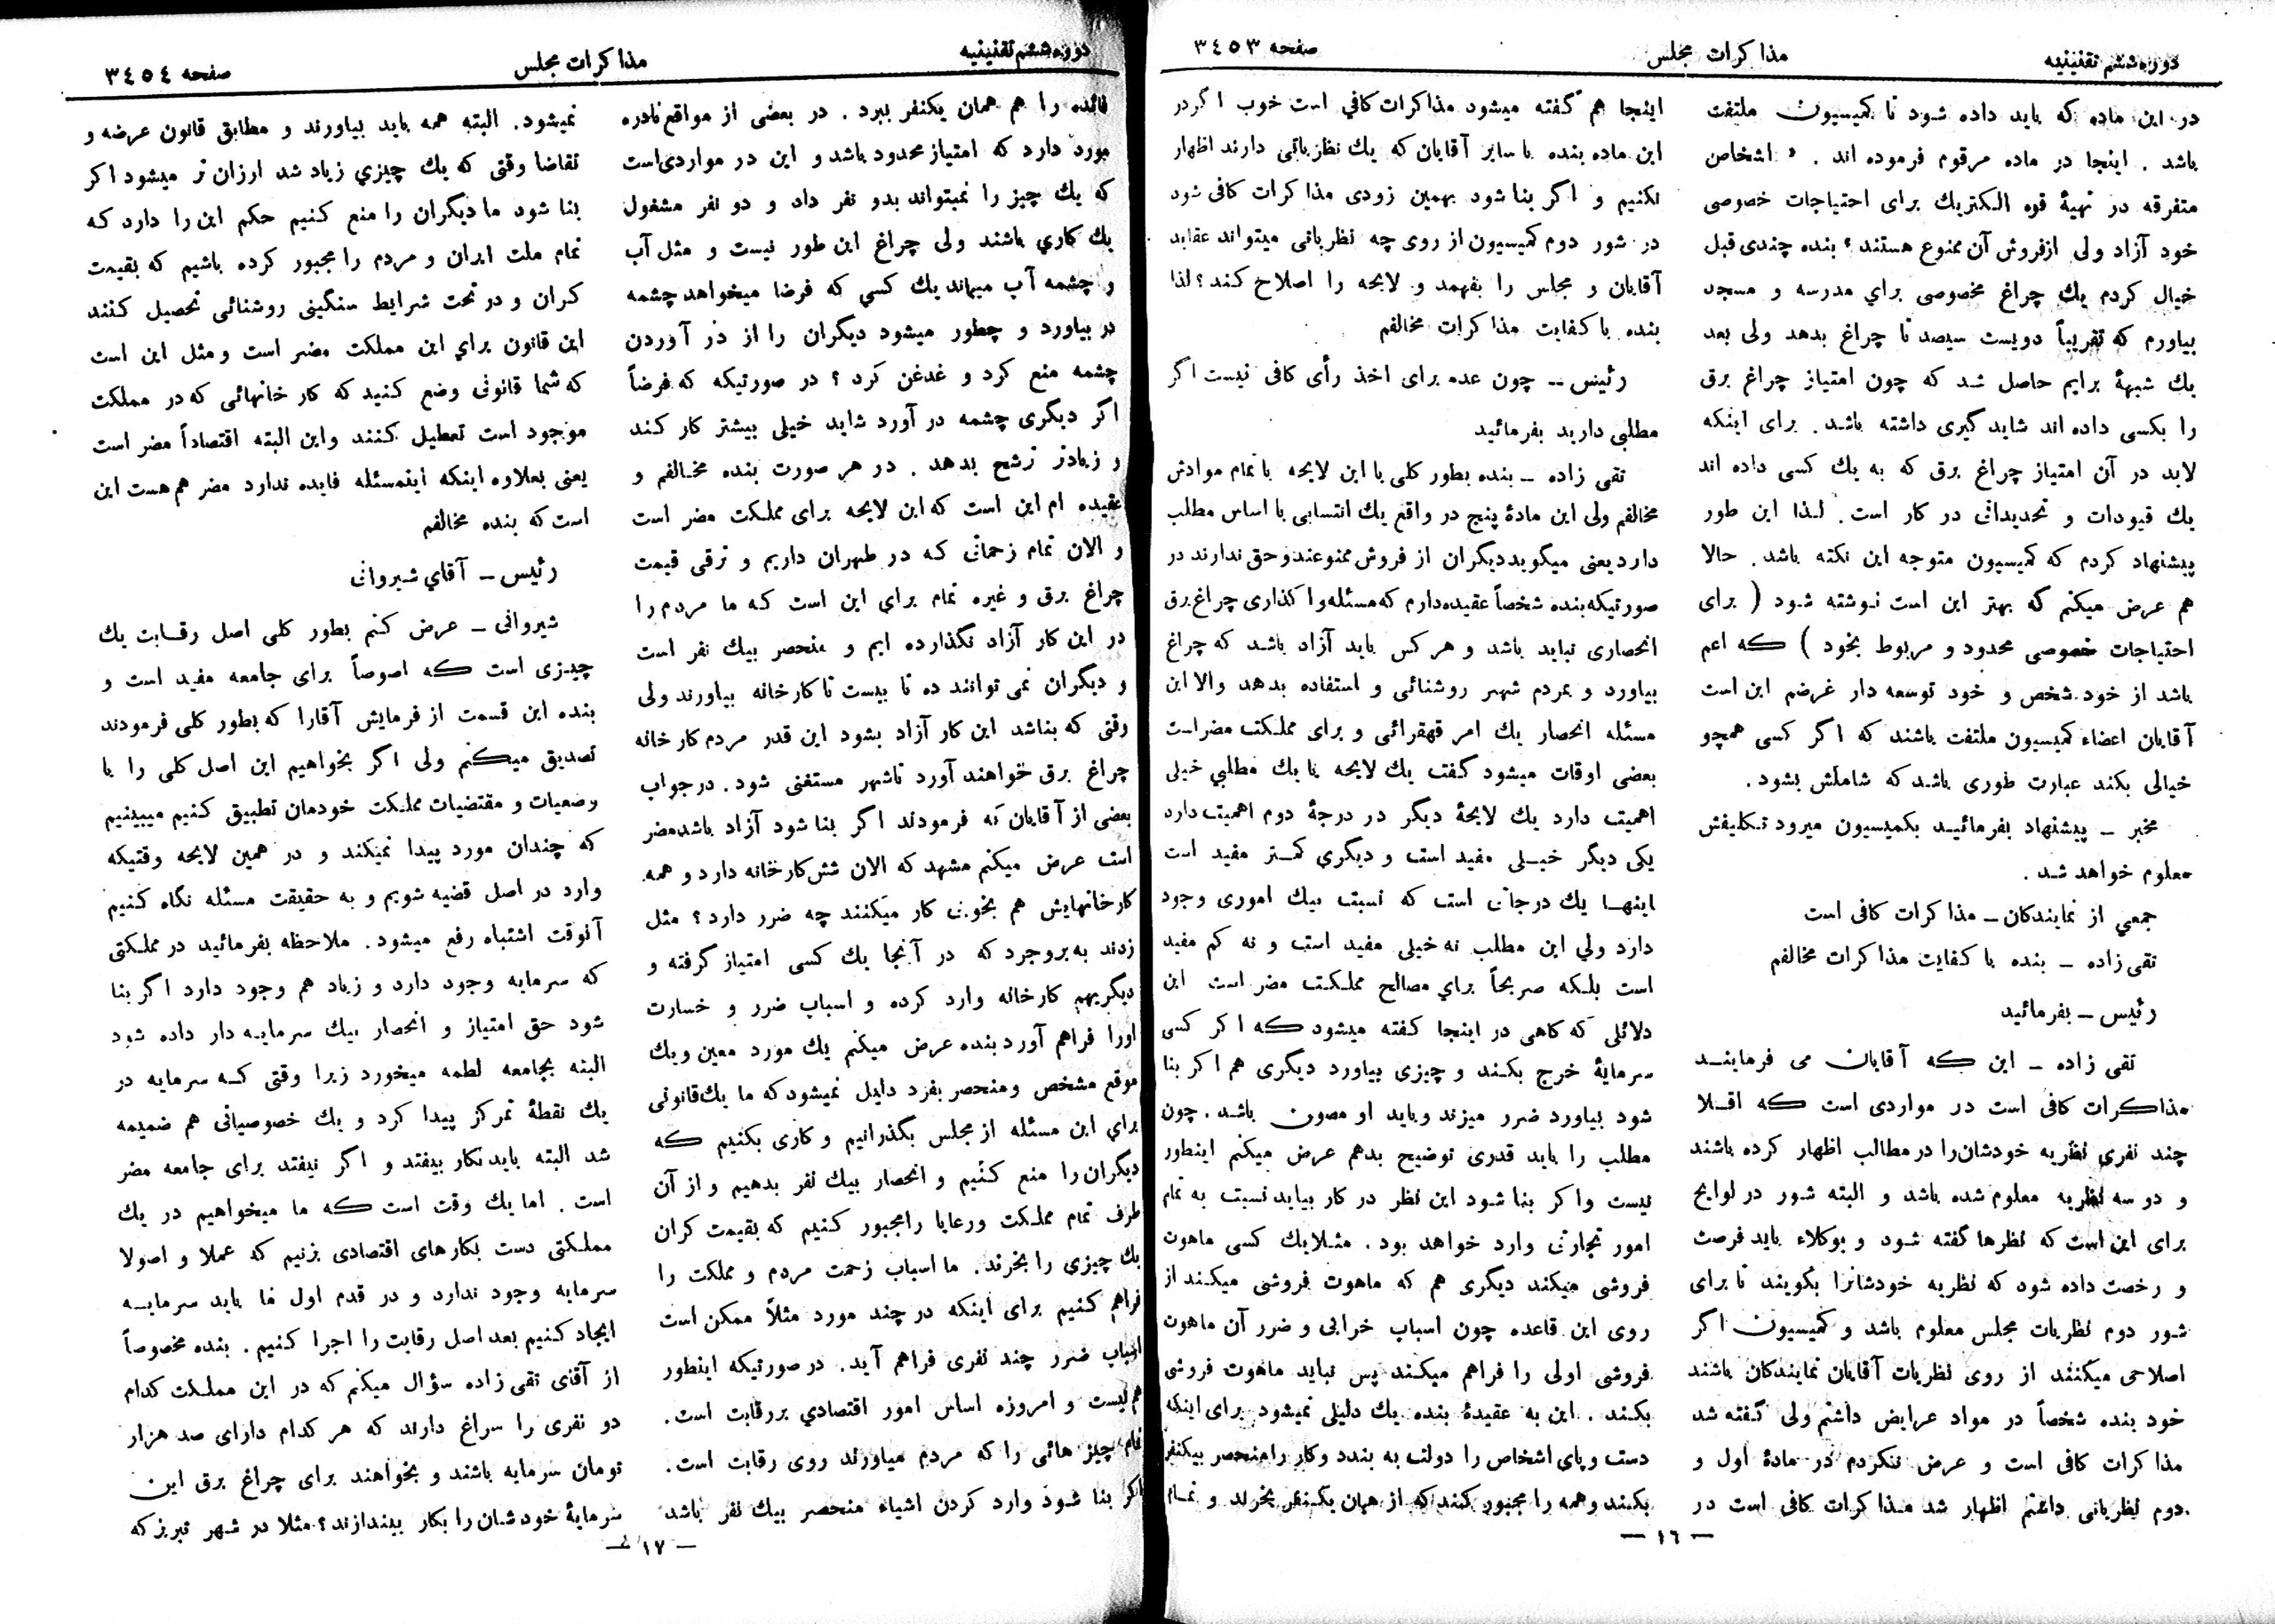 دوره ششم تقنینیه
مذاکرات مجلس
صفحه ۳٤٥۳
در این ماده که باید داده شود تا کمیسیون ملتفت
باشد . اینجا در ماده مرقوم فرموده اند . « اشخاص
متفرقه در تهیهٔ قوه الکتریك برای احتیاجات خصوصی
خود آزاد ولی ازفروش آن ممنوع هستند ؟ بنده چندی قبل
خیال کردم یك چراغ مخصوصی براي مدرسه و مسجد
بیاورم که تقریباً دویست سیصد تا چراغ بدهد ولی بعد
یك شبههٔ برایم حاصل شد که چون امتیاز چراغ برق
را بکسی داده اند شاید گیری داشته باشد . برای اینکه
لابد در آن امتیاز چراغ برق که به یك کسی داده اند
یك قیودات و تحدیداتی در کار است . لذا این طور
پیشنهاد کردم که کمیسیون متوجه این نکته باشد . حالا
هم عرض میکنم که بهتر این است نوشته شود ( برای
احتیاجات خصوصی محدود و مربوط بخود ) که اعم
باشد از خود شخص و خود توسعه دار غرضم این است
آقایان اعضاء کمیسیون ملتفت باشند که اگر کسی همچو
خیالی بکند عبارت طوری باشد که شاملش بشود .
مخبر ــ پیشنهاد بفرمائید بکمیسیون میرود تکلیفش
معلوم خواهد شد .
جمعي از نمایندگان ــ مذاکرات کافی است
تقی زاده ــ بنده با کفایت مذاکرات مخالفم
رئیس ــ بفرمائید
تقی زاده ــ این که آقایان می فرمایند
مذاکرات کافی است در مواردی است که اقلا
چند نفری نظریه خودشان را در مطالب اظهار کرده باشند
و دو سه نظریه معلوم شده باشد و البته شور در لوایح
برای این است که نظرها گفته شود و بوکلاء باید فرصت
و رخصت داده شود که نظریه خودشانرا بگویند تا برای
شور دوم نظریات مجلس معلوم باشد و کمیسیون اگر
اصلاحی میکنند از روی نظریات آقایان نمایندگان باشند
خود بنده شخصاً در مواد عرایض داشتم ولی گفته شد
مذاکرات کافی است و عرض نکردم در مادهٔ اول و
دوم نظریاتی داشتم اظهار شد مذاکرات کافی است در
اینجا هم گفته میشود مذاکرات کافي است خوب اگر در
این ماده بنده یا سایر آقایان که یك نظریاتی دارند اظهار
نکنیم و اگر بنا شود بهمین زودی مذاکرات کافی شود
در شور دوم کمیسیون از روی چه نظریاتی میتواند عقاید
آقایان و مجلس را بفهمد و لایحه را اصلاح کند ؟ لذا
بنده با کفایت مذاکرات مخالفم
رئیس ــ چون عده برای اخذ رأی کافی نیست اگر
مطلبی دارید بفرمائید
تقی زاده ــ بنده بطور کلی با این لایحه با تمام موادش
مخالفم ولی این مادهٔ پنج در واقع یك انتسابی با اساس مطلب
دارد یعنی میگوید دیگران از فروش ممنوعند و حق ندارند در
صورتیکه بنده شخصاً عقیده دارم که مسئله واگذاری چراغ برق
انحصاری نباید باشد و هر کس باید آزاد باشد که چراغ
بیاورد و بمردم شهر روشنائی و استفاده بدهد والا این
مسئله انحصار یك امر قهقرائی و برای مملکت مضر است
بعضی اوقات میشود گفت یك لایحه یا یك مطلبي خیلی
اهمیت دارد یك لایحهٔ دیگر در درجهٔ دوم اهمیت دارد
یکی دیگر خیلی مفید است و دیگري کمتر مفید است
اینها یك درجاتی است که نسبت بیك اموری وجود
دارد ولي این مطلب نه خیلی مفید است و نه کم مفید
است بلکه صریحاً براي مصالح مملکت مضر است این
دلائلی که گاهی در اینجا گفته میشود که اگر کسی
سرمایهٔ خرج بکند و چیزی بیاورد دیگری هم اگر بنا
شود بیاورد ضرر میزند و باید او مصون باشد . چون
مطلب را باید قدری توضیح بدهم عرض میکنم اینطور
نیست واگر بنا شود این نظر در کار بیاید نسبت به تمام
امور تجارتی وارد خواهد بود . مثلا یك کسی ماهوت
فروشی میکند دیگری هم که ماهوت فروشی میکند از
روی این قاعده چون اسباب خرابی و ضرر آن ماهوت
فروشی اولی را فراهم میکند پس نباید ماهوت فروشی
بکند . این به عقیدهٔ بنده یك دلیلی نمیشود برای اینکه
دست و پای اشخاص را دولت به بندد و کار را منحصر بیکنفر
بکند و همه را مجبور کند که از همان یکنفر بخرند و تمام
— ۱٦ —
دوره ششم تقنینیه
مذاکرات مجلس
صفحه ۳٤٥٤
فائده را هم همان یکنفر ببرد . در بعضی از مواقع نادره
مورد دارد که امتیاز محدود باشد و این در مواردی است
که یك چیز را نمیتواند بدو نفر داد و دو نفر مشغول
یك کاري باشند ولی چراغ این طور نیست و مثل آب
و چشمه آب میماند یك کسي که فرضا میخواهد چشمه
در بیاورد و چطور میشود دیگران را از در آوردن
چشمه منع کرد و غدغن کرد ؟ در صورتیکه که فرضاً
اگر دیگری چشمه در آورد شاید خیلی بیشتر کار کند
و زیادتر ترشح بدهد . در هر صورت بنده مخالفم و
عقیده ام این است که این لایحه برای مملکت مضر است
و الان تمام زحماتی که در طهران داریم و ترقی قیمت
چراغ برق و غیره تمام براي این است که ما مردم را
در این کار آزاد نگذارده ایم و منحصر بیك نفر است
و دیگران نمی توانند ده تا بیست تا کارخانه بیاورند ولی
وقتی که بناشد این کار آزاد بشود این قدر مردم کارخانه
چراغ برق خواهند آورد تا شهر مستغنی شود . در جواب
بعضی از آقایان که فرمودند اگر بنا شود آزاد باشد مضر
است عرض میکنم مشهد که الان شش کارخانه دارد و همه
کارخانهایش هم بخوبی کار میکنند چه ضرر دارد ؟ مثل
زدند به بروجرد که در آنجا یك کسی امتیاز گرفته و
دیگریهم کارخانه وارد کرده و اسباب ضرر و خسارت
اورا فراهم آورد بنده عرض میکنم یك مورد معین و یك
موقع مشخص ومنحصر بفرد دلیل نمیشود که ما یك قانونی
براي این مسئله از مجلس بگذرانیم و کاری بکنیم که
دیگران را منع کنیم و انحصار بیك نفر بدهیم و از آن
طرف تمام مملکت ورعایا را مجبور کنیم که بقیمت گران
یك چیزی را بخرند . ما اسباب زحمت مردم و مملکت را
فراهم کنیم برای اینکه در چند مورد مثلاً ممکن است
اسباب ضرر چند نفری فراهم آید . در صورتیکه اینطور
هم نیست و امروزه اساس امور اقتصادي بر رقابت است .
تمام چیز هائی را که مردم میاورند روی رقابت است .
اگر بنا شود وارد کردن اشیاء منحصر بیك نفر باشد
نمیشود . البته همه باید بیاورند و مطابق قانون عرضه و
تقاضا وقتی که یك چیزي زیاد شد ارزان تر میشود اگر
بنا شود ما دیگران را منع کنیم حکم این را دارد که
تمام ملت ایران و مردم را مجبور کرده باشیم که بقیمت
گران و در تحت شرایط سنگینی روشنائی تحصیل کنند
این قانون براي این مملکت مضر است و مثل این است
که شما قانونی وضع کنید که کار خانهائی که در مملکت
موجود است تعطیل کنند واین البته اقتصاداً مضر است
یعنی بعلاوه اینکه اینمسئله فایده ندارد مضر هم هست این
است که بنده مخالفم
رئیس ــ آقاي شیروانی
شیروانی ــ عرض کنم بطور کلی اصل رقابت یك
چیزی است که اصوصاً برای جامعه مفید است و
بنده این قسمت از فرمایش آقارا که بطور کلی فرمودند
تصدیق میکنم ولی اگر بخواهیم این اصل کلی را با
وضعیات و مقتضیات مملکت خودمان تطبیق کنیم میبینیم
که چندان مورد پیدا نمیکند و در همین لایحه وقتیکه
وارد در اصل قضیه شویم و به حقیقت مسئله نگاه کنیم
آنوقت اشتباه رفع میشود . ملاحظه بفرمائید در مملکتی
که سرمایه وجود دارد و زیاد هم وجود دارد اگر بنا
شود حق امتیاز و انحصار بیك سرمایه دار داده شود
البته بجامعه لطمه میخورد زیرا وقتی که سرمایه در
یك نقطهٔ تمرکز پیدا کرد و یك خصوصیاتی هم ضمیمه
شد البته باید نکار بیفتد و اگر نیفتد برای جامعه مضر
است . اما یك وقت است که ما میخواهیم در یك
مملکتی دست بکارهای اقتصادی بزنیم که عملا و اصولا
سرمایه وجود ندارد و در قدم اول ما باید سرمایه
ایجاد کنیم بعد اصل رقابت را اجرا کنیم . بنده مخصوصاً
از آقای تقی زاده سؤال میکنم که در این مملکت کدام
دو نفری را سراغ دارند که هر کدام دارای صد هزار
تومان سرمایه باشند و بخواهند برای چراغ برق این
سرمایهٔ خودشان را بکار بیندازند ؟ مثلا در شهر تبریز که
— ۱۷ —